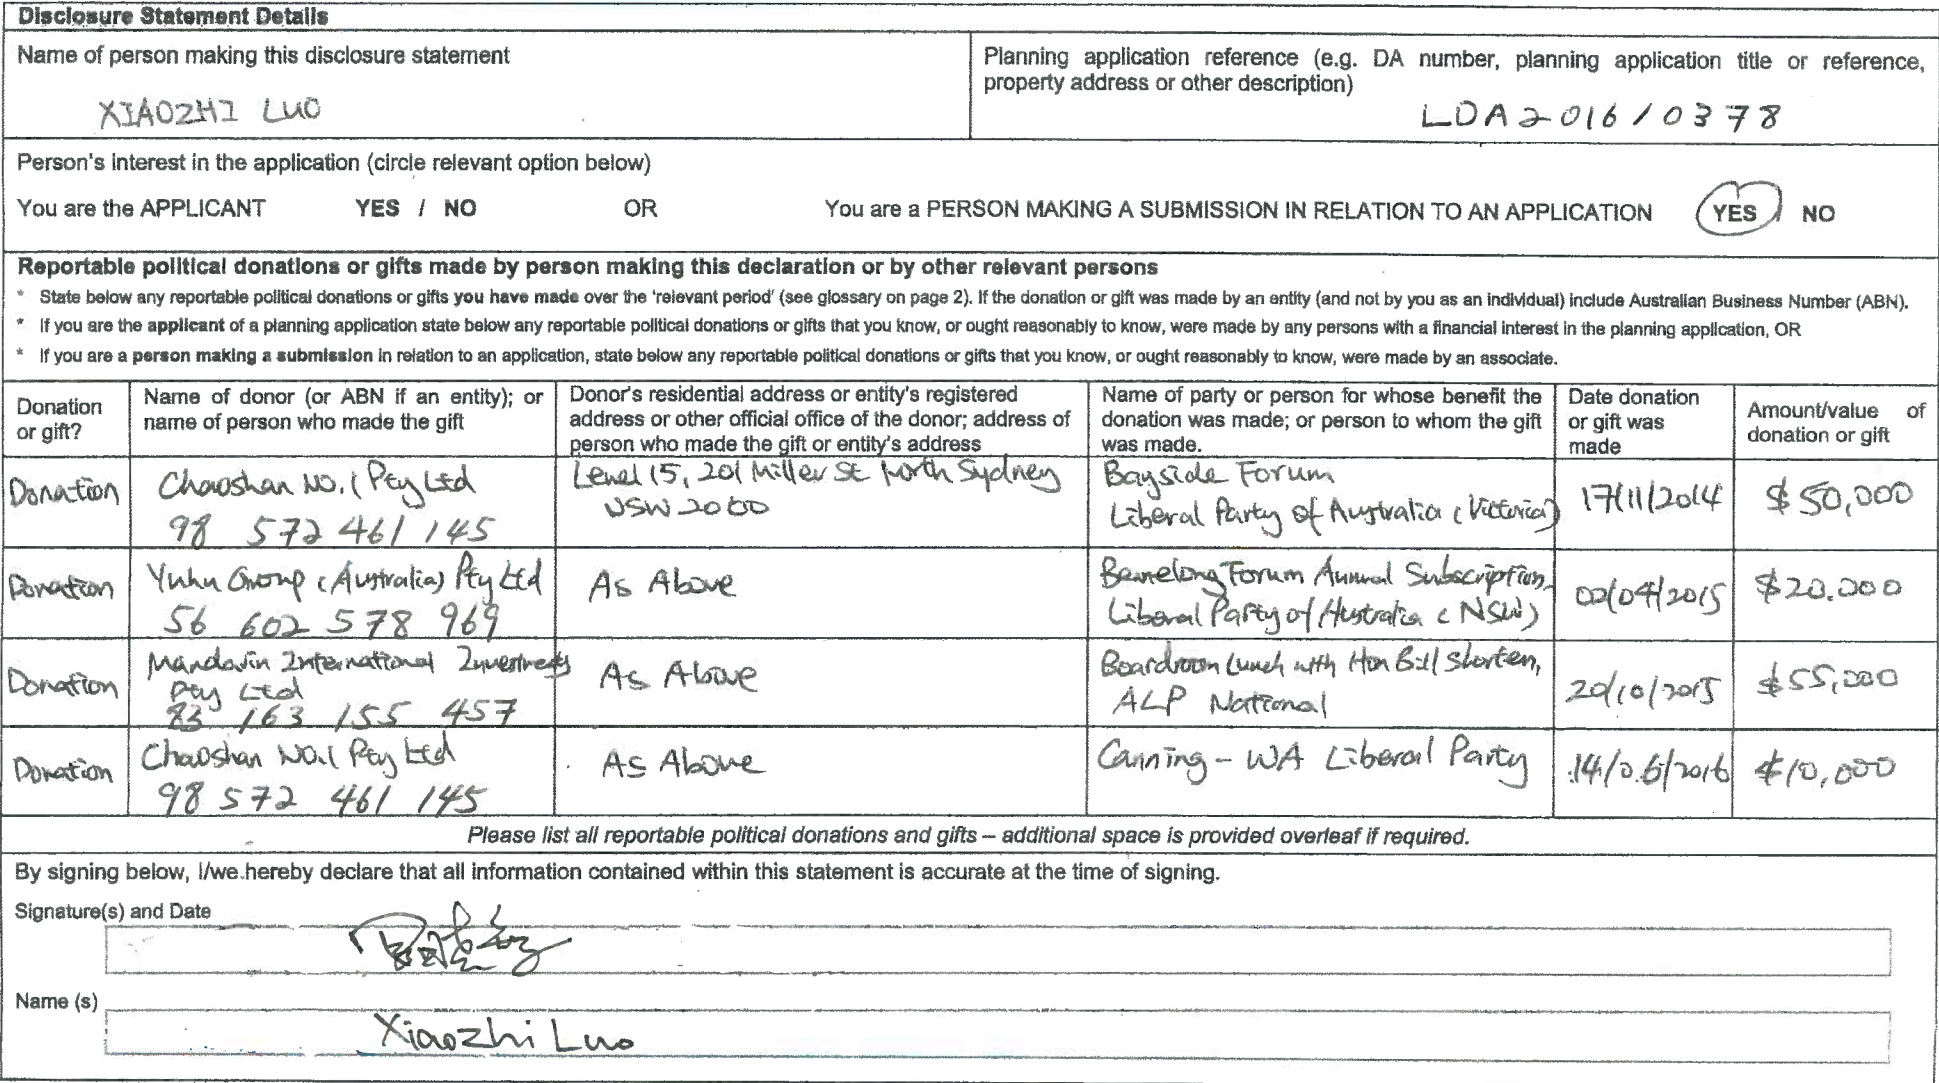 Disclosure Statement Details
Name of person making this disclosure statement
XIAOZHI LUO
Planning application reference (e.g. DA number, planning application title or reference,
property address or other description)
LDA2016/0378
Person's interest in the application (circle relevant option below)
You are the APPLICANT YES / NO OR You are a PERSON MAKING A SUBMISSION IN RELATION TO AN APPLICATION YES / NO
Reportable political donations or gifts made by person making this declaration or by other relevant persons
* State below any reportable political donations or gifts you have made over the 'relevant period' (see glossary on page 2). If the donation or gift was made by an entity (and not by you as an individual) include Australian Business Number (ABN).
* If you are the applicant of a planning application state below any reportable political donations or gifts that you know, or ought reasonably to know, were made by any persons with a financial interest in the planning application, OR
* If you are a person making a submission in relation to an application, state below any reportable political donations or gifts that you know, or ought reasonably to know, were made by an associate.
Donation
or gift?
Name of donor (or ABN if an entity); or
name of person who made the gift
Donor's residential address or entity's registered
address or other official office of the donor; address of
person who made the gift or entity's address
Name of party or person for whose benefit the
donation was made; or person to whom the gift
was made.
Date donation
or gift was
made
Amount/value of
donation or gift
Donation
Chaoshan No.1 Pty Ltd
98 572 461 145
Level 15, 201 Miller St North Sydney
NSW 2060
Bayside Forum
Liberal Party of Australia (Victoria)
17/11/2014
$50,000
Donation
Yuhu Group (Australia) Pty Ltd
56 602 578 969
As Above
Bennelong Forum Annual Subscription,
Liberal Party of Australia (NSW)
02/04/2015
$20.000
Donation
Mandarin International Investments
Pty Ltd
83 163 155 457
As Above
Boardroom Lunch with Hon Bill Shorten,
ALP National
20/10/2015
$55,000
Donation
Chaoshan No.1 Pty Ltd
98 572 461 145
As Above
Canning - WA Liberal Party
14/06/2016
$10,000
Please list all reportable political donations and gifts – additional space is provided overleaf if required.
By signing below, I/we hereby declare that all information contained within this statement is accurate at the time of signing.
Signature(s) and Date
Name (s)
Xiaozhi Luo